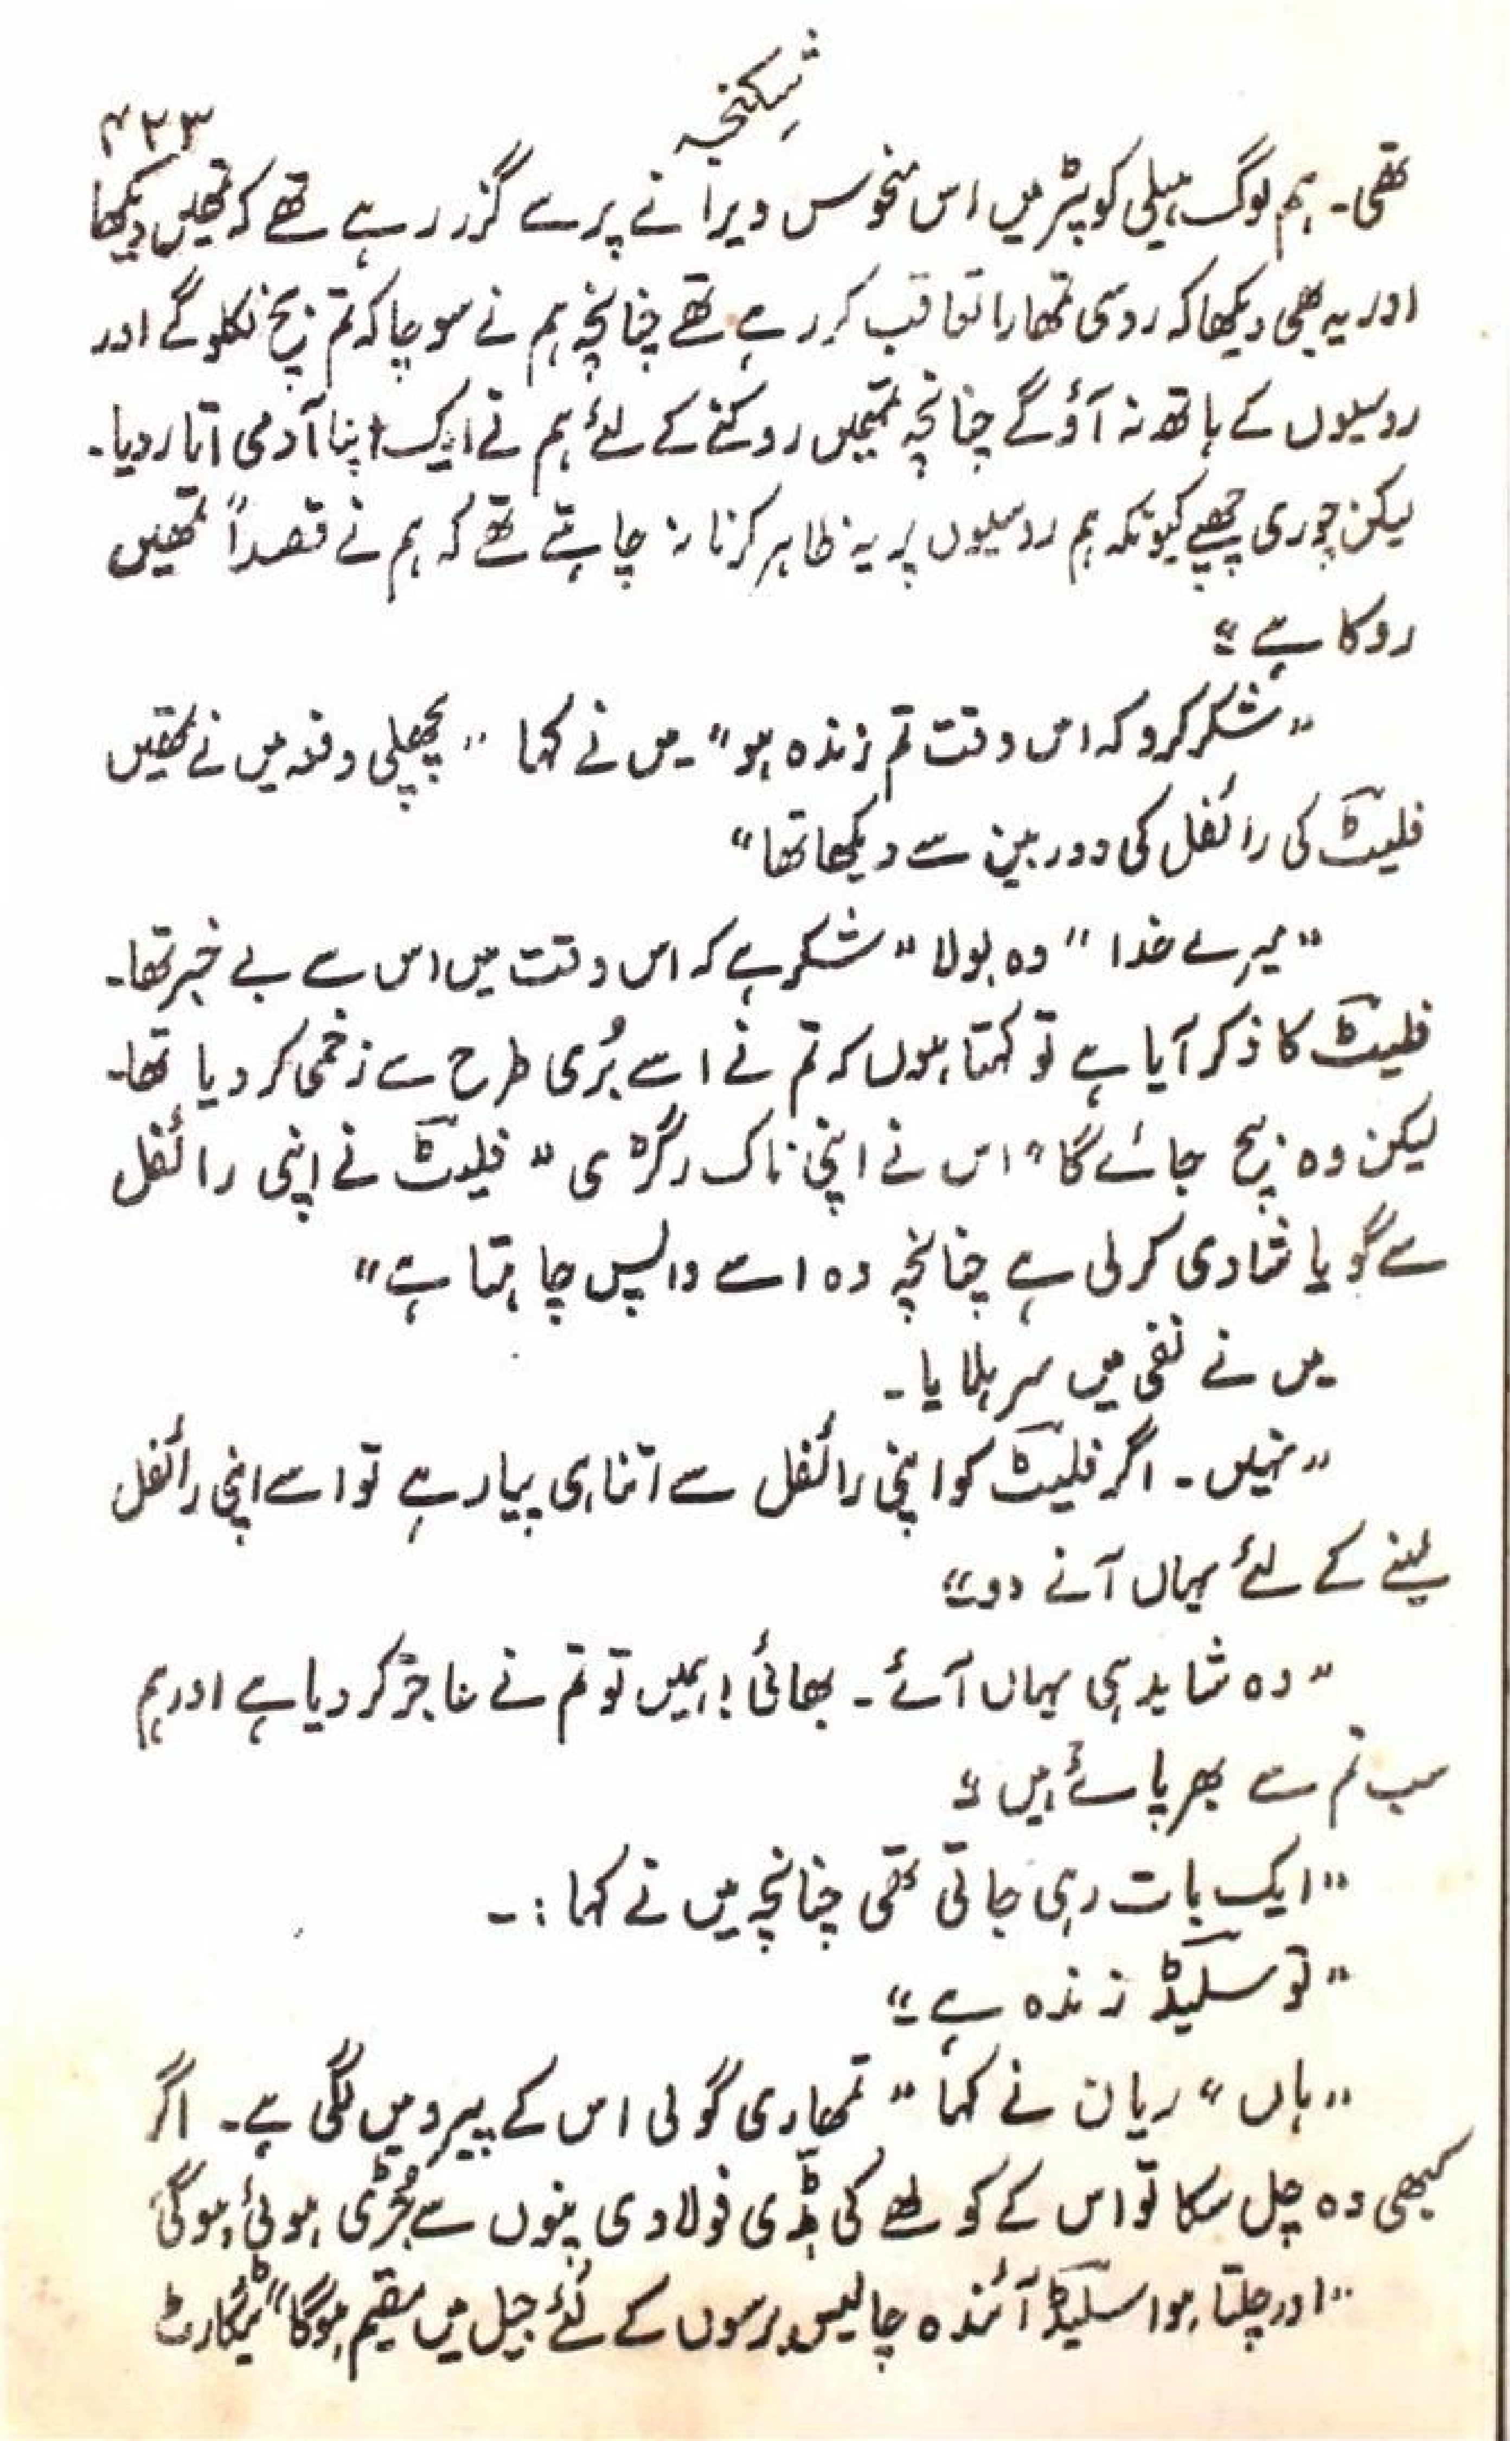 شکنجہ
۴۳۳
تھی۔ ہم لوگ ہیلی کوپٹر میں اس منحوس ویرانے پر سے گزر رہے تھے کہ تمھیں دیکھا
اور یہ بھی دیکھا کہ روسی تمھارا تعاقب کر رہے تھے چنانچہ ہم نے سوچا کہ تم بچ نکلو گے اور
روسیوں کے ہاتھ نہ آؤ گے چنانچہ تمھیں روکنے کے لئے ہم نے ایک اپنا آدمی اتار دیا۔
لیکن چوری چھپے کیونکہ ہم روسیوں پر یہ ظاہر کرنا نہ چاہتے تھے کہ ہم نے قصداً تمھیں
روکا ہے۔"
"شکر کرو کہ اس وقت تم زندہ ہو"۔ میں نے کہا "پچھلی دفعہ میں نے تمھیں
فلیٹ کی رائفل کی دوربین سے دیکھا تھا"
"میرے خدا" وہ بولا "شکر ہے کہ اس وقت میں اس سے بے خبر تھا۔
فلیٹ کا ذکر آیا ہے تو کہتا ہوں کہ تم نے اسے بُری طرح سے زخمی کر دیا تھا۔
لیکن وہ بچ جائے گا" اس نے اپنی ناک رگڑی "فلیٹ نے اپنی رائفل
سے گویا شادی کر لی ہے چنانچہ وہ اسے واپس چاہتا ہے"
میں نے نفی میں سر ہلایا۔
"نہیں۔ اگر فلیٹ کو اپنی رائفل سے اتنا ہی پیار ہے تو اسے اپنی رائفل
لینے کے لئے یہاں آنے دو۔"
"وہ شاید ہی یہاں آئے۔ بھائی! ہمیں تو تم نے عاجز کر دیا ہے اور ہم
سب تم سے بھر پائے ہیں۔"
"ایک بات رہی جاتی تھی چنانچہ میں نے کہا:۔
"تو سلیڈ زندہ ہے۔"
"ہاں" ریان نے کہا "تمھاری گولی اس کے پیڑو میں لگی ہے۔ اگر
کبھی وہ چل سکا تو اس کے کولھے کی ہڈی فولادی پنوں سے جُڑی ہوئی ہوگی
"اور چلتا ہوا سلیڈ آئندہ چالیس برسوں کے لئے جیل میں مقیم ہوگا" ٹیگارٹ